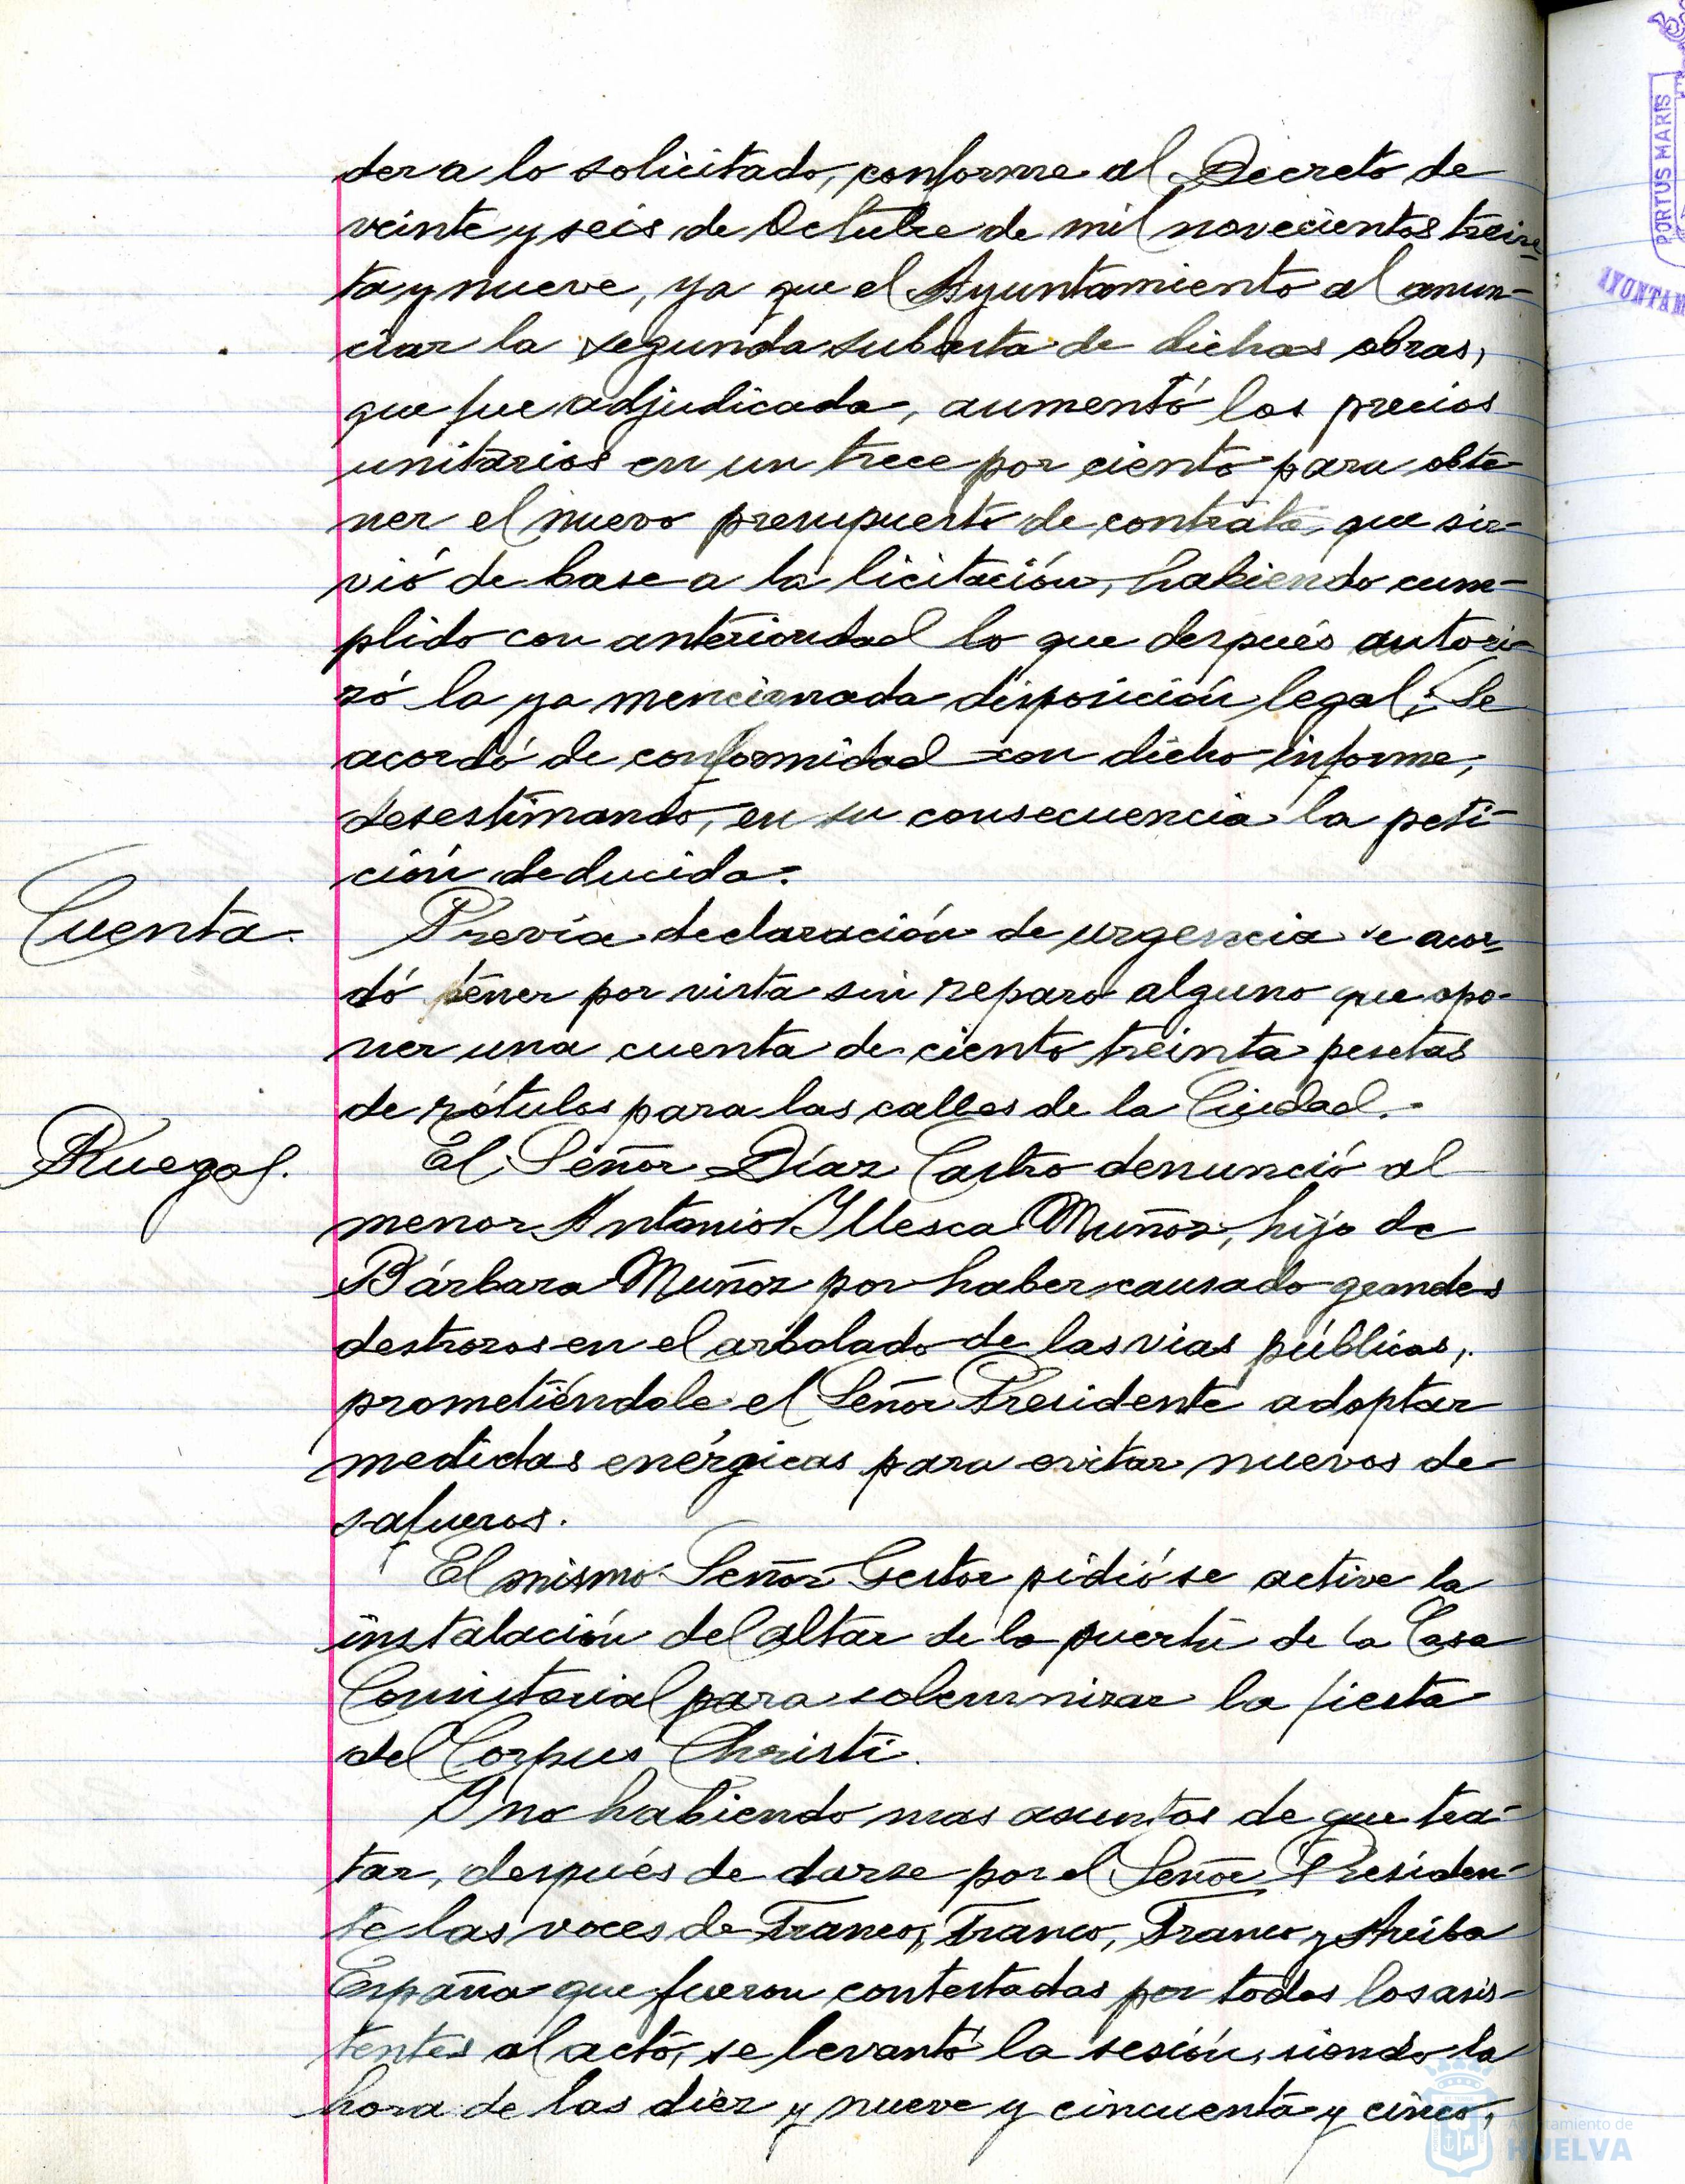 der a lo solicitado, conforme al Decreto de
veinte y seis de Octubre de mil novecientos trein-
ta y nueve, ya que el Ayuntamiento al anun-
ciar la segunda subasta de dichas obras,
que fue adjudicada, aumentó los precios
unitarios en un trece por ciento para obte-
ner el nuevo presupuesto de contrata que sir-
vió de base a la licitación, habiendo cum-
plido con anterioridad lo que después autori-
zó la ya mencionada disposición legal; Se
acordó de conformidad con dicho informe,
desestimando, en su consecuencia la peti-
ción deducida.
Cuenta.
Previa declaración de urgencia se acor-
dó tener por vista sin reparo alguno que opo-
ner una cuenta de ciento treinta pesetas
de rótulos para las calles de la Ciudad.-
Ruegos.
El Señor Díaz Castro denunció al
menor Antonio Yllesca Muñoz, hijo de
Bárbara Muñoz por haber causado grandes
destrozos en el arbolado de las vias públicas,
prometiéndole el Señor Presidente adoptar
medidas enérgicas para evitar nuevos de
safueros.
El mismo Señor Gestor pidió se active la
instalación del altar de la puerta de la Casa
Consistorial para solemnizar la fiesta
del Corpus Christi.
Y no habiendo mas asuntos de que tra-
tar, después de darse por el Señor Presiden-
te las voces de Franco, Franco, Franco y Arriba
España que fueron contestadas por todos los asis-
tentes al acto, se levantó la sesión, siendo la
hora de las diez y nueve y cincuenta y cinco,
PORTUS MARIS
AYUNTAM
Ayuntamiento de
HUELVA